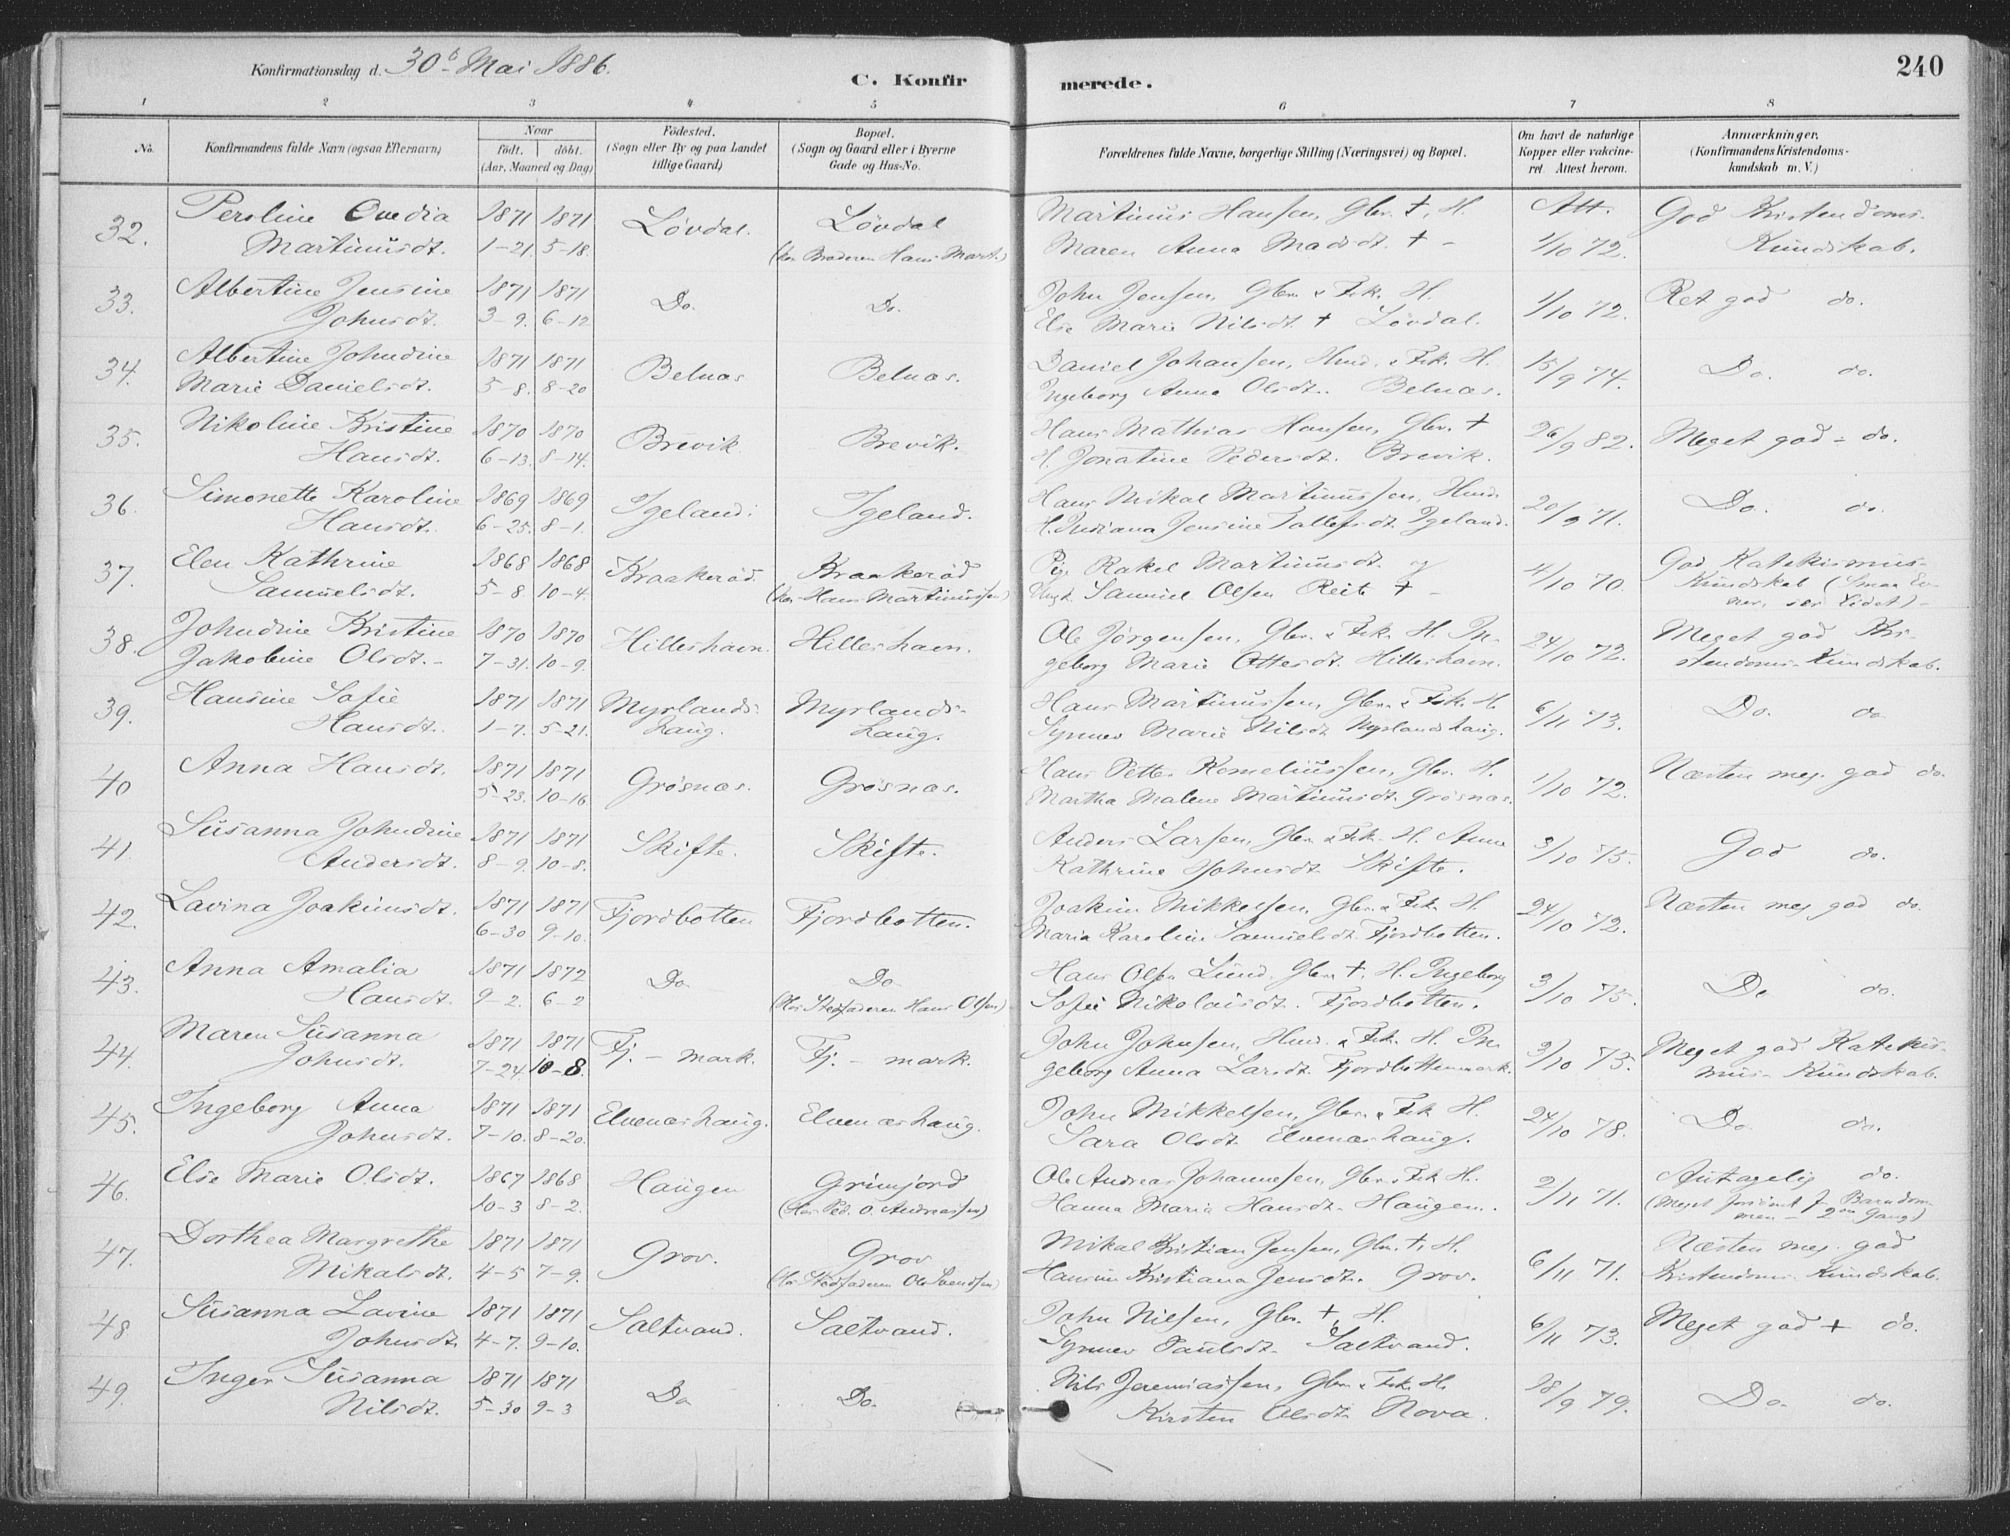 Konfirmationsdag d. 30te Mai 1886.
C. Konfirmerede.
240
1 2 3 4 5 6 7 8
No.
Konfirmandens fulde Navn (ogsaa Efternavn)
Naar
födt. döbt.
(Aar, Maaned og Dag)
Födested.
(Sogn eller By og paa Landet
tillige Gaard)
Bopæl.
(Sogn og Gaard eller i Byerne
Gade og Hus-No.
Forældrenes fulde Navne, borgerlige Stilling (Næringsvei) og Bopæl.
Om havt de naturlige
Kopper eller vakcine-
ret Attest herom.
Anmærkninger.
(Konfirmandens Kristendoms-
kundskab m. V.)
32. Peroline Ovedia 1871 1871 Løvdal. Løvdal Martinus Hansen, Gbr. †, H. Att. God Kristendoms-
Martinusdt. 1-21. 5-18. (hos Broderen Hans Mart.) Maren Anna Madsdt. † - 1/10 72. Kundskab.
33. Albertine Jensine 1871 1871 Do. Do. John Jensen, Gbr. & Fsk. H. 1/10 72. Ret god do.
Johnsdt. 3-9. 6-12 Else Marie Nilsdt. † Løvdal.
34. Albertine Johndine 1871 1871 Belnæs Belnæs. Daniel Johansen, Hmd. & Fsk. H. 15/9 74. Do. do.
Marie Danielsdt. 5-8. 8-20 Ingeborg Anna Olsdt. Belnæs.
35. Nikoline Kristine 1870 1870 Brevik Brevik. Hans Mathias Hansen, Gbr. † 26/9 82. Meget god - do.
Hansdt. 6-13. 8-14. H. Jonatine Pedersdt. Brevik.
36. Simonette Karoline 1869 1869 Igeland. Igeland. Hans Mikal Martinussen, Hmd. 20/9 71. Do. do.
Hansdt. 6-25. 8-1. H. Indiana Jensine Tollefsdt. Igeland.
37. Elen Kathrine 1868 1868 Kraakerød. Kraakerød Pig. Rakel Martinusdt. og 4/10 70. God Katekismus-
Samuelsdt. 5-8 10-4. (hos Hans Martinussen) Ungk. Samuel Olsen Reits † - Kundskab (Smaa Ev-
ner, ser lidet) -
38. Johndine Kristine 1870 1870 Hilleshavn. Hilleshavn. Ole Jørgensen, Gbr. & Fsk. H. In- 24/10 72. Meget god Kri-
Jakobine Olsdt. - 7-31. 10-9. geborg Marie Ottesdt. Hilleshavn. stendoms-Kundskab.
39. Hansine Sofie 1871 1871 Myrlands- Myrlands- Hans Martinussen, Gbr. & Fsk. H. 6/11 73. Do. do
Hansdt. 1-7. 5-21. haug. haug. Synnev Marie Nilsdt. Myrlandshaug.
40 Anna Hansdt. 1871 1871 Grøsnæs. Grøsnæs. Hans Petter Korneliussen, Gbr. H. 1/10 72. Næsten meg. god do.
5-23. 10-16. Martha Malene Martinusdt. Grøsnæs.
41. Susanna Johndine 1871 1871 Skifte. Skifte. Anders Larsen, Gbr. & Fsk. H. Anne 3/10 75. God do.
Andersdt. 8-9. 10-8. Kathrine Johnsdt. Skifte.
42. Lavina Joakimsdt. 1871 1871 Fjordbotten Fjordbotten. Joakim Mikkelsen, Gbr. & Fsk. H. 24/10 72. Næsten meg. god do.
6-30 9-10. Maria Karoline Samuelsdt. Fjordbotten.
43. Anna Amalia 1871 1872 Do Do. Hans Olsen Lund, Gbr. †, H. Ingeborg 3/10 75. Do do.
Hansdt. 9-2. 6-2 (Hos Stedfaderen Hans Olsen) Sofie Nikolaisdt. Fjordbotten.
44. Maren Susanna 1871 1871 Fj. - mark. Fj. - mark. John Johnsen, Hmd. & Fsk. H. In- 3/10 75. Meget god Katekis-
Johnsdt. 7-24. 10-8. geborg Anna Larsdt. Fjordbottenmark. mus-Kundskab.
45. Ingeborg Anna 1871 1871 Elvenæshaug. Elvenæshaug. John Mikkelsen, Gbr. & Fsk H. 24/10 78. Do. do.
Johnsdt. 7-10. 8-20. Sara Olsdt. Elvenæshaug.
46. Else Marie Olsdt. 1867 1868 Haugen Grimjord Ole Andreas Johannesen, Gbr. & Fsk H. 2/11 71. Antagelig do.
10-3 8-2. (Hos Ped. O. Andreassen) Hanna Maria Hansdt. Haugen. (Meget forsømt f. Barndom-
men - 2den Gang)
47. Dorthea Margrethe 1871 1871 Grov. Grov Mikal Kristian Jensen, Gbr. †, H. 6/11 71. Næsten meg. god
Mikalsdt. 4-5 7-9. (Hos Stedfaderen Ole Svendsen) Hansine Kristiana Jensdt. Grov. Kristendoms-Kundskab.
48 Susanna Lavine 1871 1871 Saltvand. Saltvand. John Nilsen, Gbr. †, H. 6/11 73. Meget god + do.
Johnsdt. 4-7. 9-10. Synnev Paulsdt. Saltvand.
49. Inger Susanna 1871 1871 Do Do. Nils Jeremiassen, Gbr. & Fsk. H. 18/9 79. Do. do.
Nilsdt. 5-30 9-3 Kirsten Olsdt. Nova.